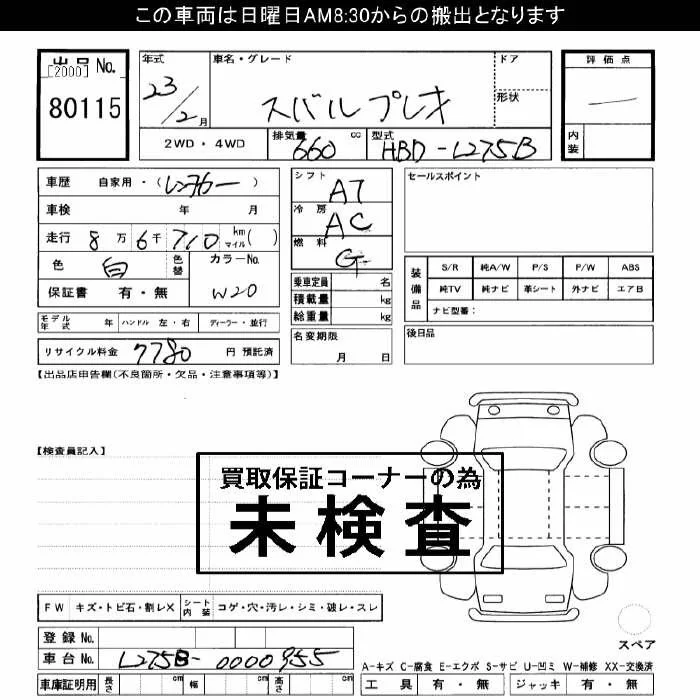 この車両は日曜日AM8:30からの搬出となります
出品 No.
[2000]
80115
年式
23/2月
車名・グレード
スバルプレオ
ドア
形状
評価点
内装
2WD・4WD
排気量 660 cc
型式 HBD-L275B
車歴 自家用・(レンタカー)
車検 年 月
走行 8万6千710 km マイル( )
色 白 色替 カラーNo.
W20
保証書 有・無
シフト AT
冷房 AC
燃料 G
乗車定員 名
積載量 kg
総重量 kg
セールスポイント
装備品
S/R 純A/W P/S P/W ABS
純TV 純ナビ 革シート 外ナビ エアB
ナビ型番:
モデル年式 年 ハンドル 左・右 ディーラー・並行
名変期限 月 日
後日品
リサイクル料金 7780 円 預託済
【出品店申告欄(不良箇所・欠品・注意事項等)】
【検査員記入】
買取保証コーナーの為
未検査
FW キズ・トビ石・割レX シート内装 コゲ・穴・汚レ・シミ・破レ・スレ
登録 No.
車台 No. L275B-0000955
車庫証明用 長さ cm 幅 cm 高さ cm
スペア
A-キズ C-腐食 E-エクボ S-サビ U-凹ミ W-補修 XX-交換済
工具 有・無 ジャッキ 有・無